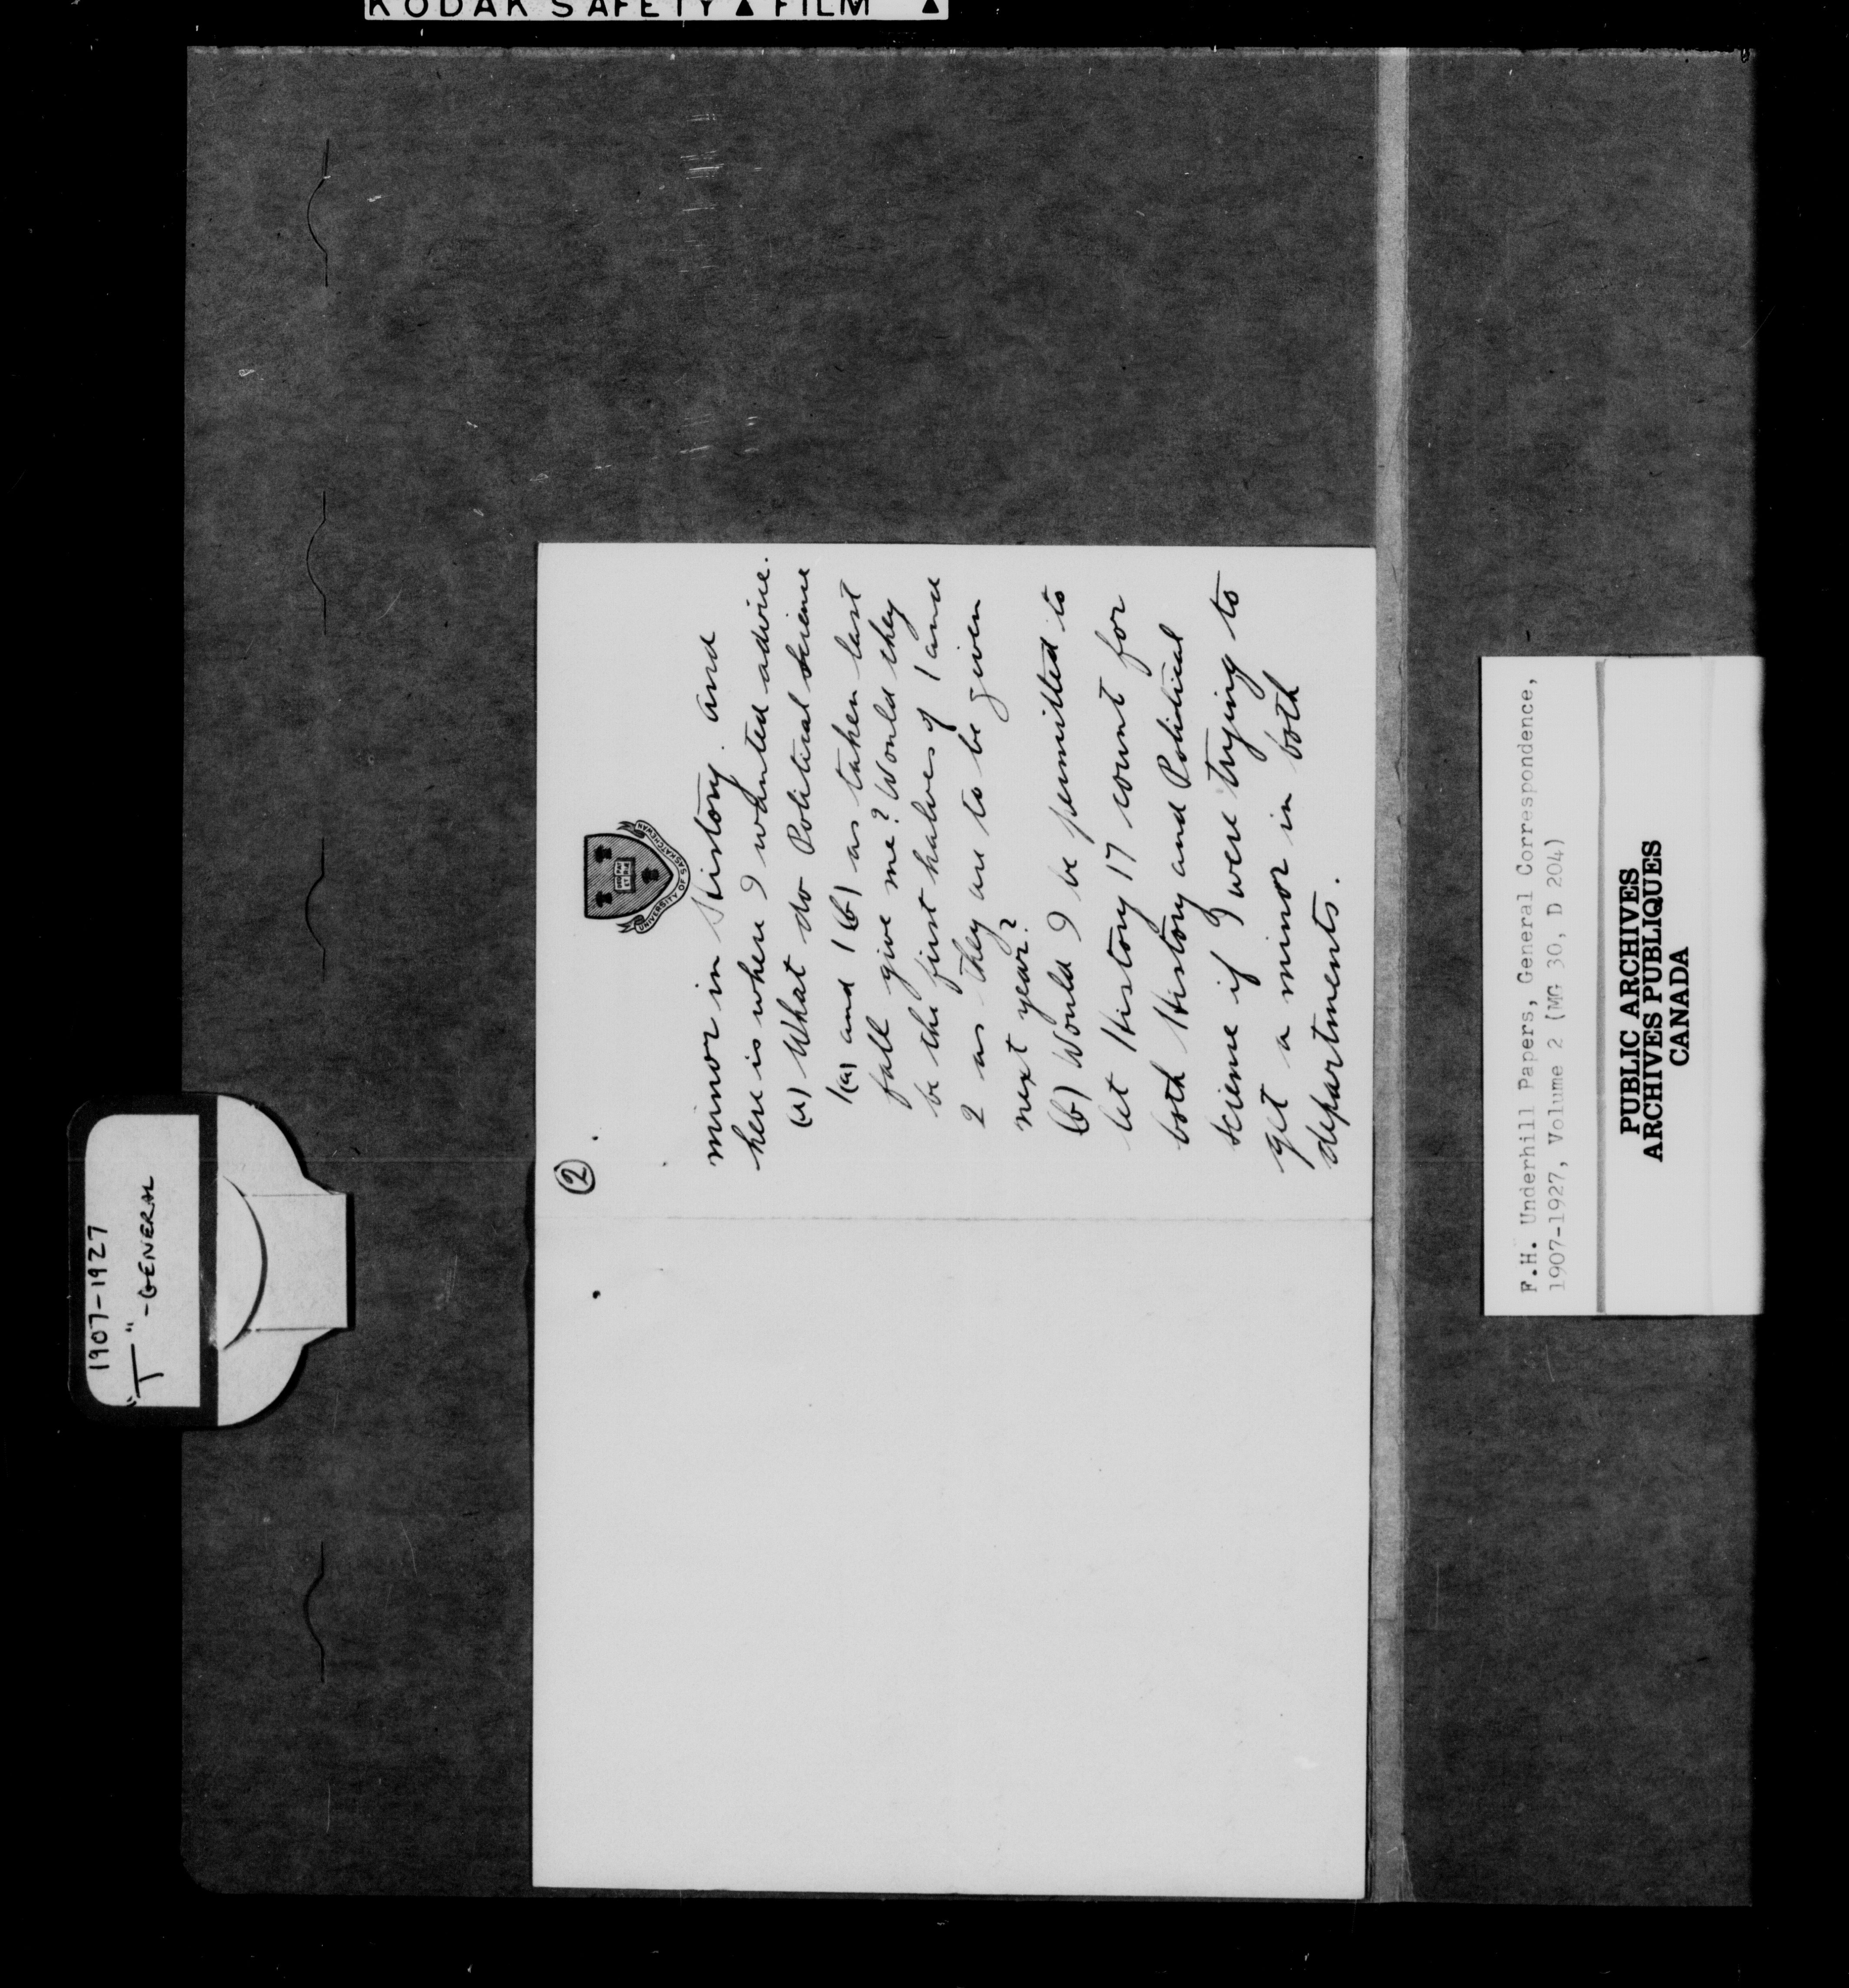 KODAK SAFETY ▲ FILM ▲
1907-1927
"T" -GENERAL
②
UNIVERSITY OF SASKATCHEWAN
minor in History. And
here is where I wanted advice.
(a) What do Political Science
1(a) and 1(b) as taken last
fall give me? Would they
be the first halves of 1 and
2 as they are to be given
next year?
(b) Would I be permitted to
let History 17 count for
both History and Political
Science if I were trying to
get a minor in both
departments.
F.H. Underhill Papers, General Correspondence,
1907-1927, Volume 2 (MG 30, D 204)
PUBLIC ARCHIVES
ARCHIVES PUBLIQUES
CANADA